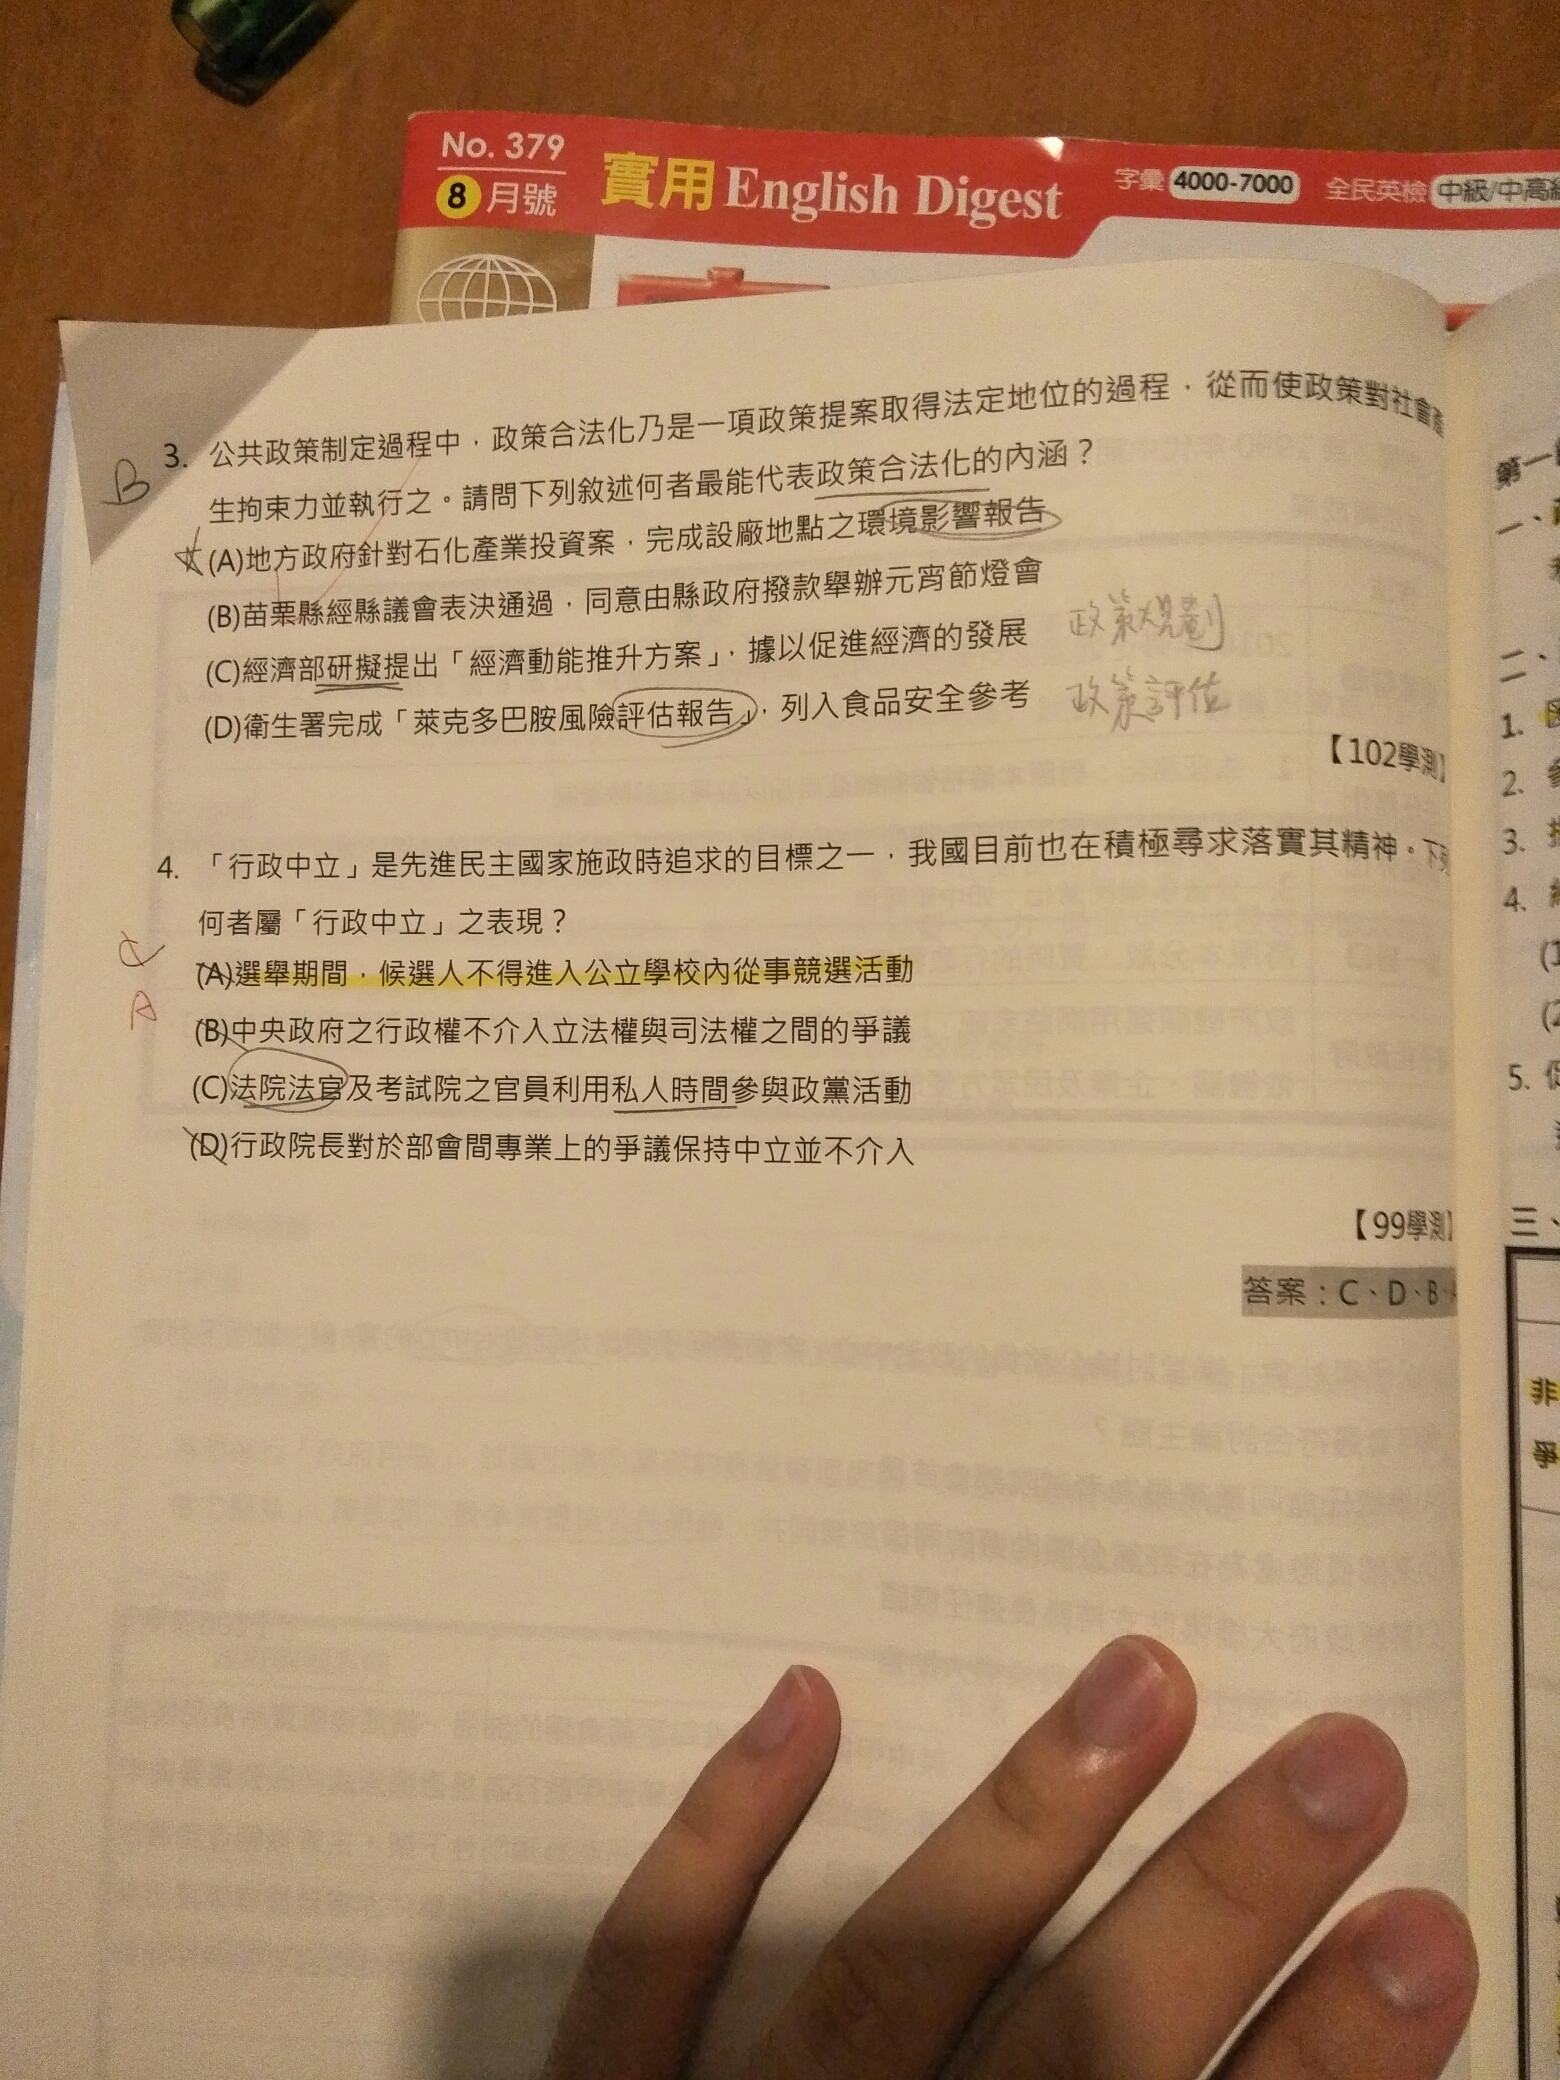 No. 379
8月號
實用 English Digest
字彙 4000-7000
全民英檢 中級/中高級
B
3. 公共政策制定過程中，政策合法化乃是一項政策提案取得法定地位的過程，從而使政策對社會產
生拘束力並執行之。請問下列敘述何者最能代表政策合法化的內涵？
(A)地方政府針對石化產業投資案，完成設廠地點之環境影響報告
(B)苗栗縣經縣議會表決通過，同意由縣政府撥款舉辦元宵節燈會
(C)經濟部研擬提出「經濟動能推升方案」，據以促進經濟的發展 政策規劃
(D)衛生署完成「萊克多巴胺風險評估報告」，列入食品安全參考 政策評估
【102學測】
4. 「行政中立」是先進民主國家施政時追求的目標之一，我國目前也在積極尋求落實其精神。下列
何者屬「行政中立」之表現？
C
A
(A)選舉期間，候選人不得進入公立學校內從事競選活動
(B)中央政府之行政權不介入立法權與司法權之間的爭議
(C)法院法官及考試院之官員利用私人時間參與政黨活動
(D)行政院長對於部會間專業上的爭議保持中立並不介入
【99學測】
答案：C、D、B、
第一
一、
二、
1.
2.
3.
4.
5.
三、
非
爭